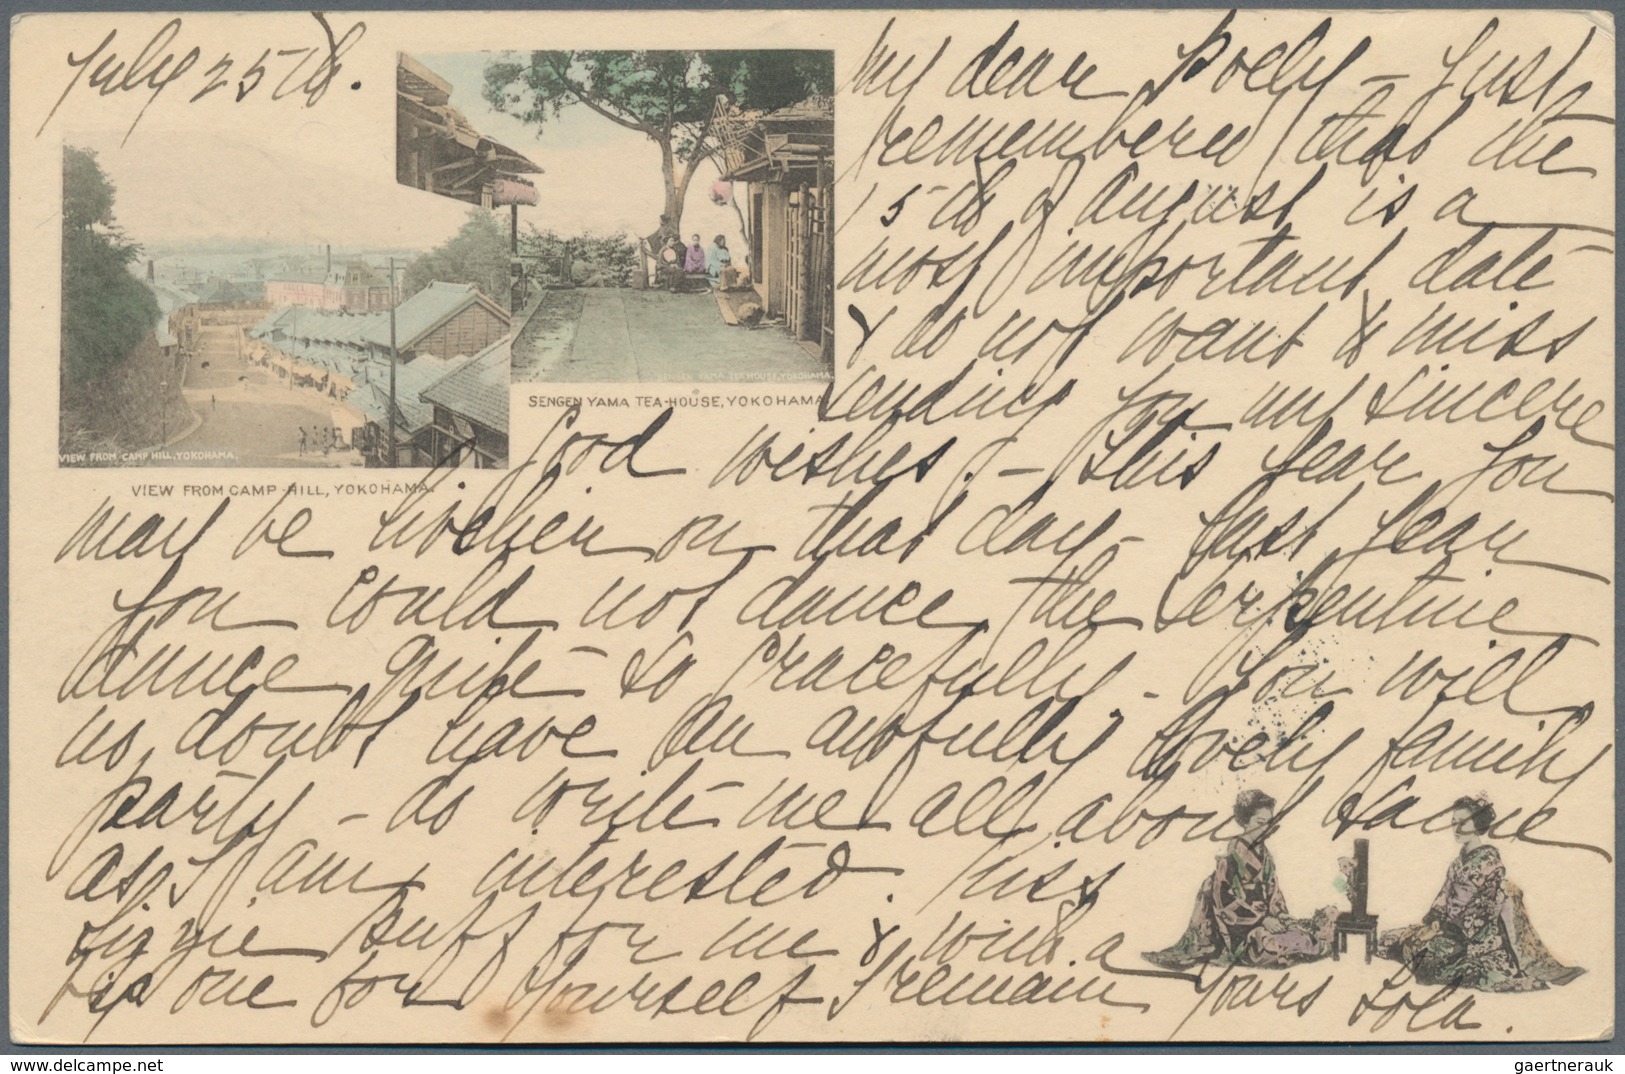 July 25th.
My dear Poely - Just
remembered that the
15th of August is a
most important date
& do not want to miss
sending you my sincere
good wishes. - This year you
may be livelier on that day - last year
you could not dance the serpentine
dance quite so gracefully - You will
no doubt have an awfully lovely family
party - do write me all about same
as I am interested. Kiss
Lizzie Buff for me & with a
big one for yourself I remain Yours Lola.
SENGEN YAMA TEA-HOUSE, YOKOHAMA
SENGEN YAMA TEA HOUSE, YOKOHAMA.
VIEW FROM CAMP HILL, YOKOHAMA.
VIEW FROM CAMP-HILL, YOKOHAMA.
www.delcampe.net
gaertnerauk